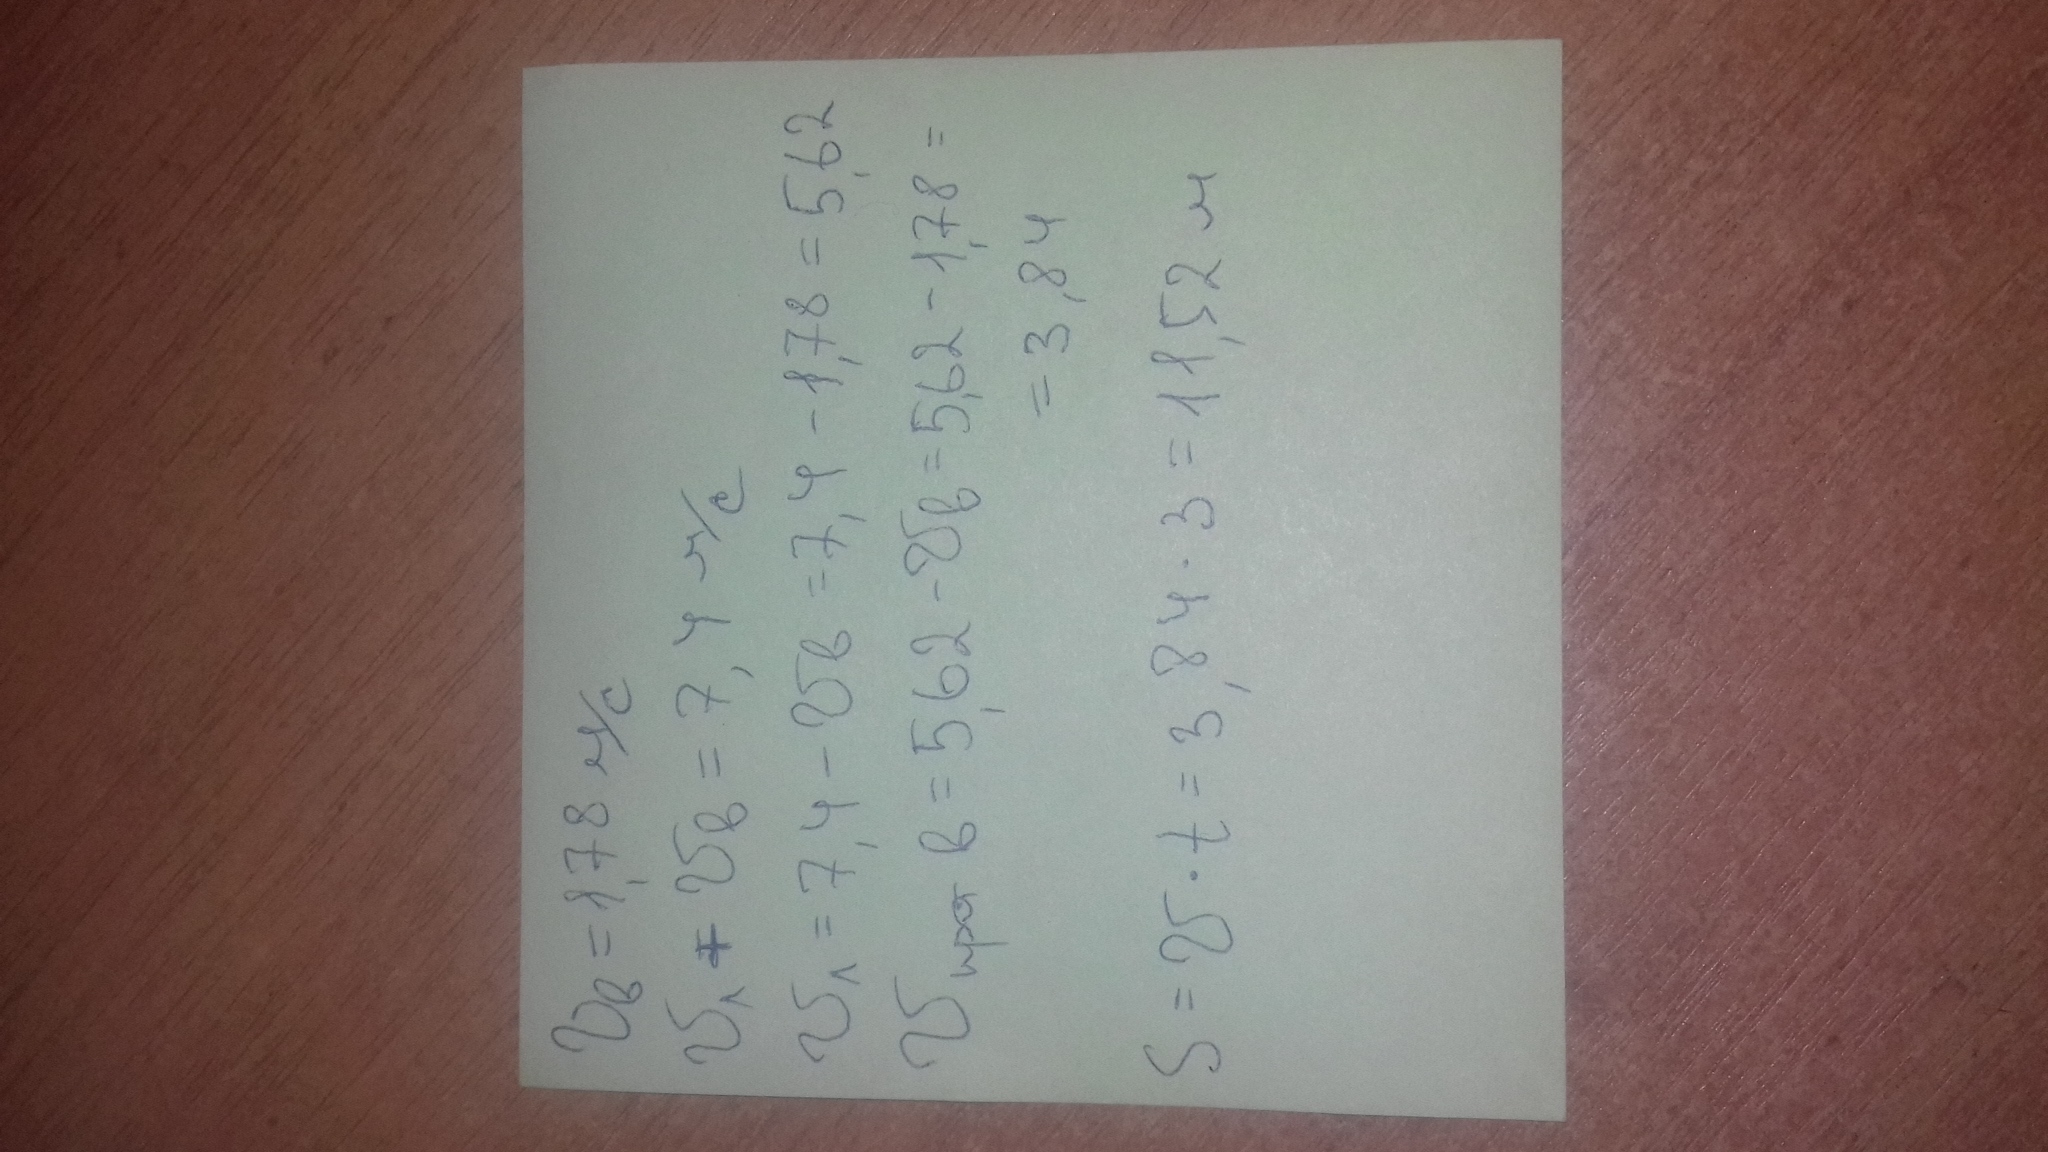 υв = 1,78 м/с
υл + υв = 7,4 м/с
υл = 7,4 - υв = 7,4 - 1,78 = 5,62
υпрот в = 5,62 - υв = 5,62 - 1,78 =
= 3,84
S = υ · t = 3,84 · 3 = 11,52 м